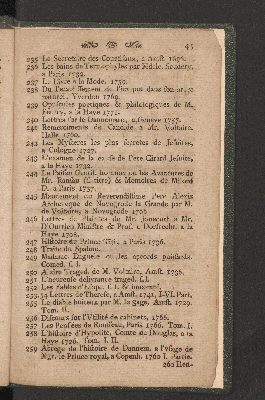 45
235 Le Secretaire des Courtisans, a Amst. 1696.
236 Les bains de Termopyles par Mdlle. Scudery,
a Paris 1732.
237 Le Livre a la Mode. 1759.
238 Du l'aneantissement de l'
Yverdon 1769.
239 Opuscules poetiques & philologiques de M.
Feutry, a la Haye 1771.
240 Lettres sur le Dannemarc, a Geneve 1757.
241 Remerciments de Candide a Mr. Voltaire.
Halle 1760.
242 Les Mysteres les plus secretes de Jesuites,
a Cologne 1727.
243 L'examen de la cause de Pere Girard Jesuite,
a la Haye 1732.
244 Le Païsan Gentilhomme ou les Avantures de
Mr. Ransau (C. titre) & Memoires de Milord
D. a Paris 1737.
245 Mandement du Reverendissime Pere Alexis
Archeveque de Novogrode la Grande par M.
de Voltaire a Novogrode 1766
246 Lettres de Plaintes de Mr. Joncourt a Mr.
D'Ourrien Ministre & Prof. a Dordrecht a la
Haye 1708.
247 Histoire du Prince Titi, a Paris 1736.
248 Traite du Spalme.
249 Madame Engueule ou les accords poissards.
Comed. f. l.
250 Alzire Traged. de M. Voltaire, Amst. 1736.
251 L'heureuse delivrance traged. f. l.
252 Les Fables d'Esope. f. t.
253.54 Lettres de Therese, a Amst. 1741, I-VI. Part.
255 Le diable boiteux par M. la Sage, Amst. 1729.
Tom. II.
256 Discours sur l'Utilité de cabinets, 1766.
257 Les Pensées de Rousseau, Paris 1766. Tom. I.
258 L'histoire d'Hypolite, Comte de Douglas, a la
Haye 1726. Tom. I. II.
259 Abregé de l'histoire de Dannem. a l'usage de
Mgr. le Prince royal, a Copenh. 1760 I. Partie.
260 Hen-